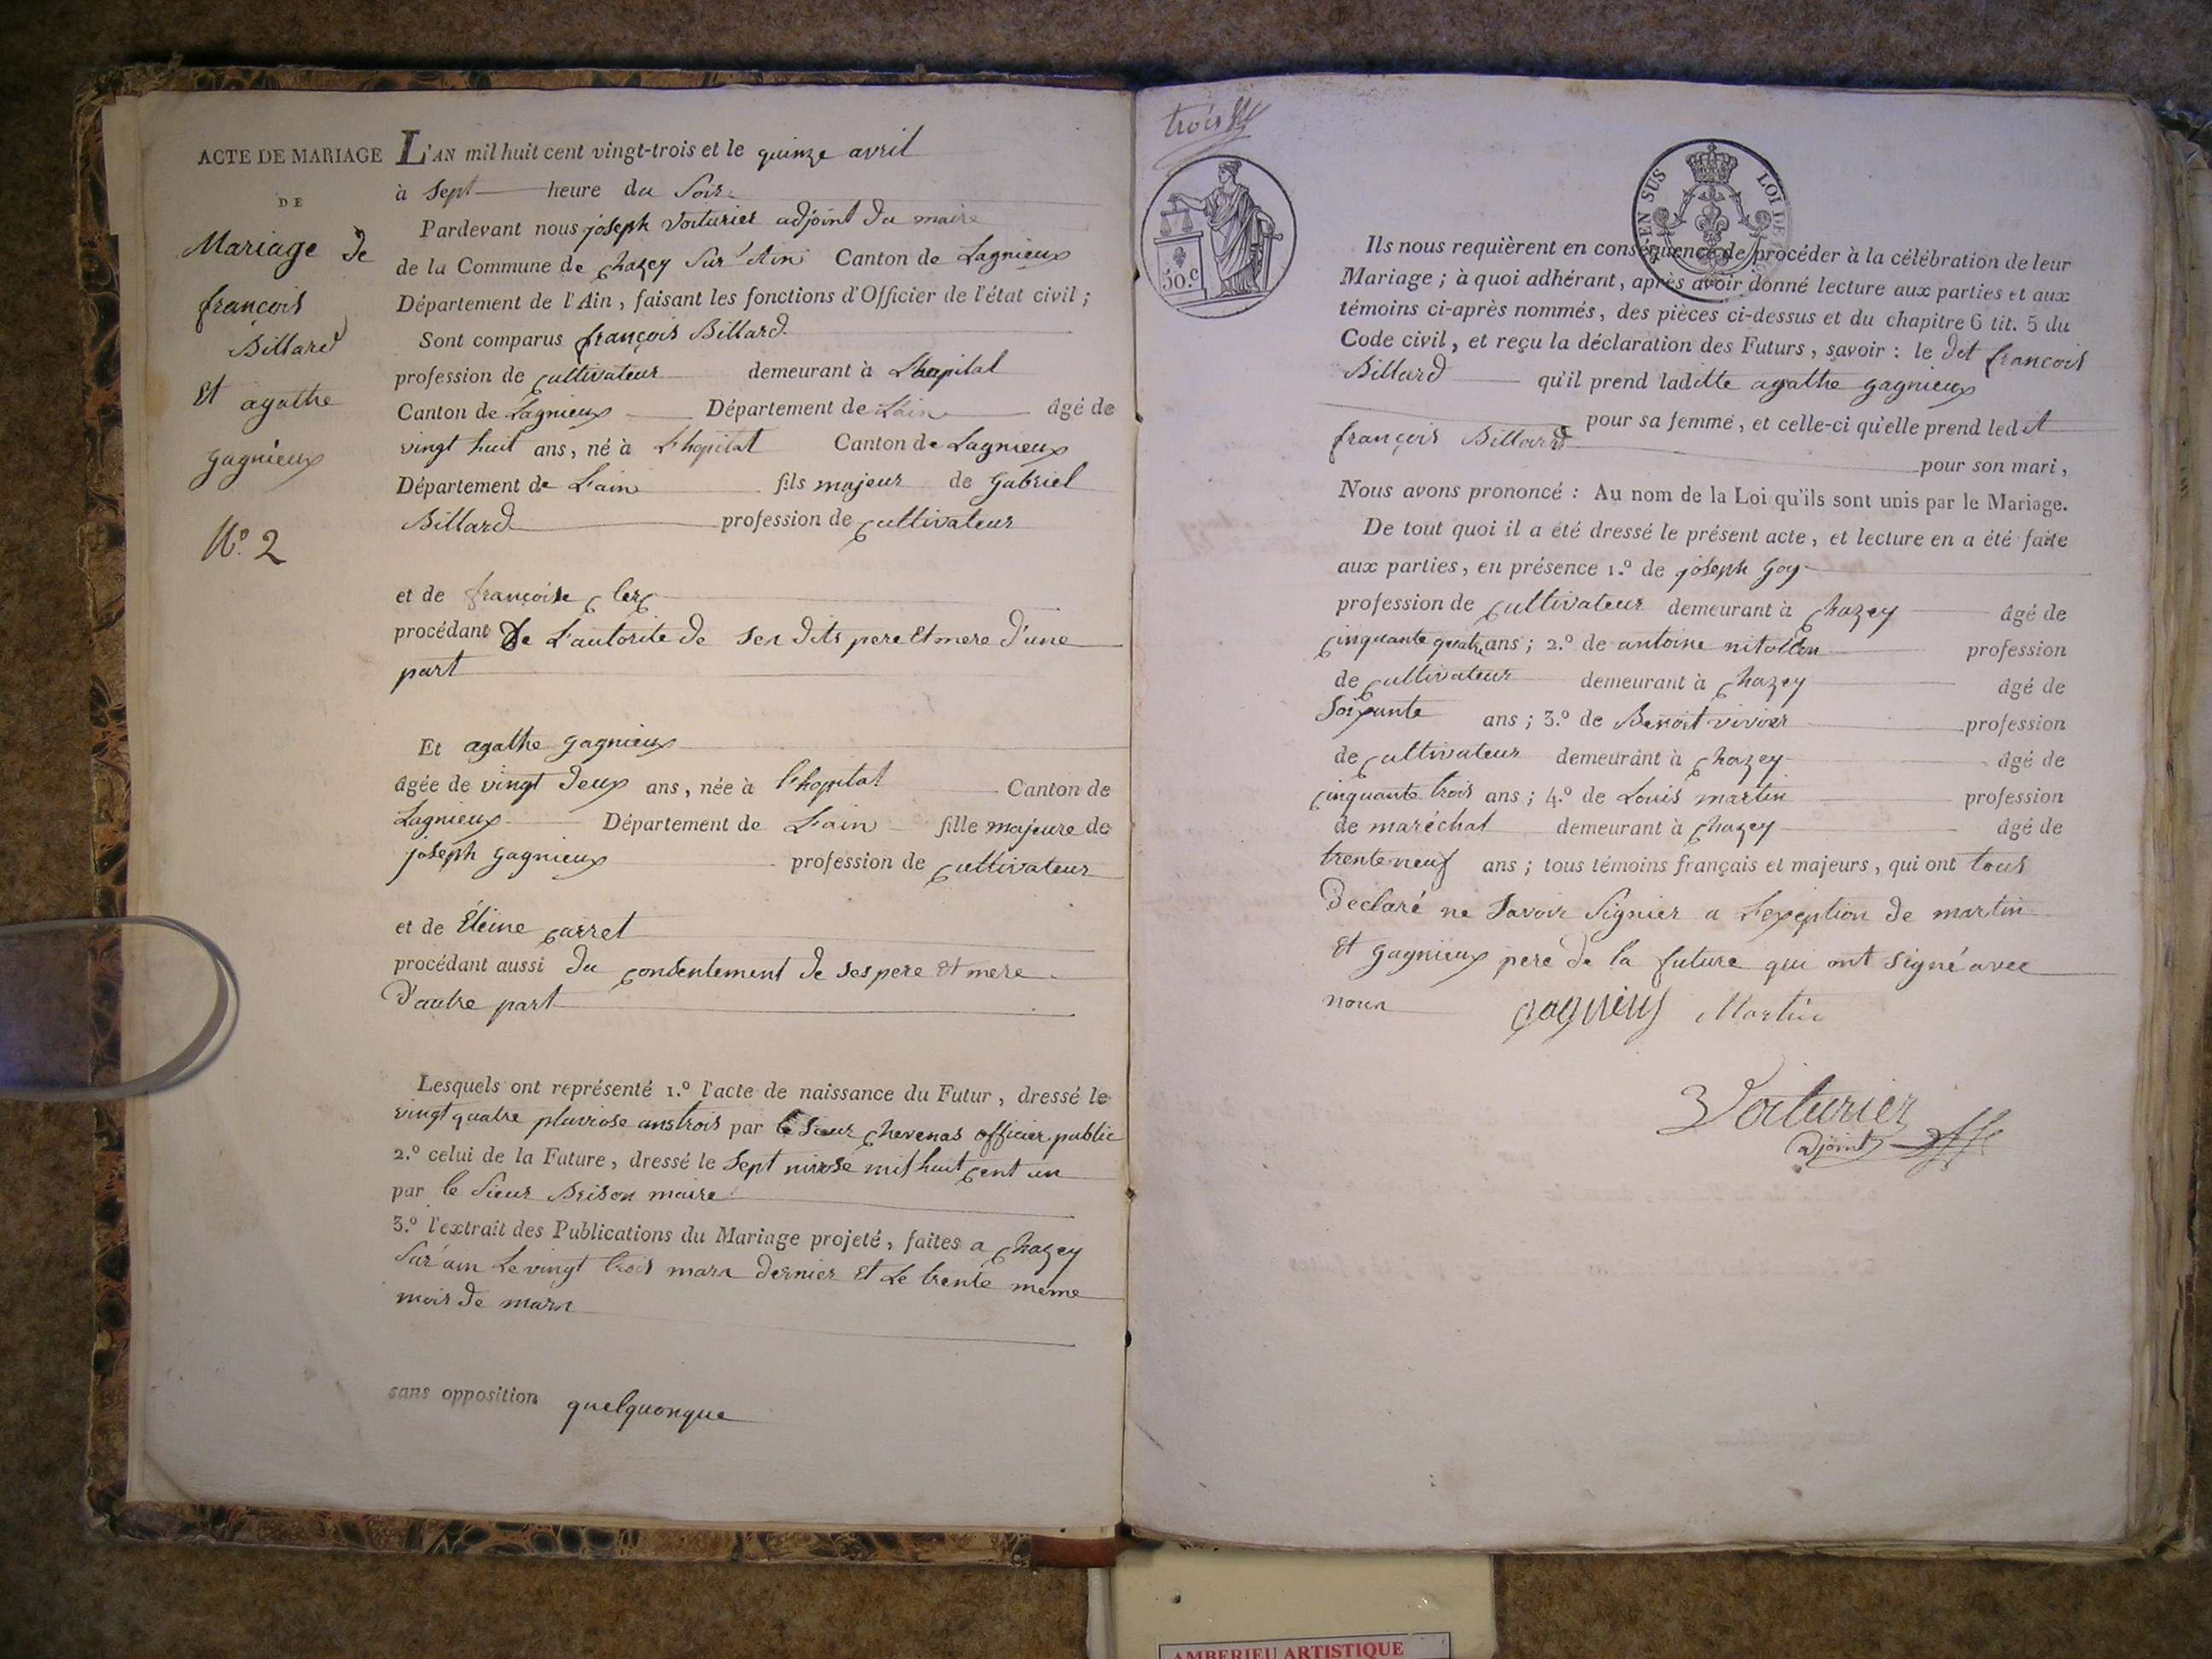 ACTE DE MARIAGE
DE
Mariage de
françois
Billard
Et agathe
gagnieux
N.o 2
L'AN mil huit cent vingt-trois et le quinze avril
à sept heure du soir
Pardevant nous joseph Voiturier adjoint du maire
de la Commune de chazey sur Ain Canton de Lagnieux
Département de l'Ain, faisant les fonctions d'Officier de l'état civil ;
Sont comparus françois Billard
profession de cultivateur demeurant à Lhopital
Canton de Lagnieux Département de L'ain âgé de
vingt huit ans, né à L'hopital Canton de Lagnieux
Département de L'ain fils majeur de gabriel
Billard profession de cultivateur
et de françoise clerc
procédant de L'autorité de ses dits pere Et mere d'une
part
Et agathe gagnieux
âgée de vingt deux ans, née à l'hopital Canton de
Lagnieux Département de L'ain fille majeure de
joseph gagnieux profession de cultivateur
et de Éleine carret
procédant aussi du consentement de ses pere Et mere
D'autre part
Lesquels ont représenté 1.º l'acte de naissance du Futur, dressé le
vingt quatre pluviose ans trois par le sieur chevenas officier public
2.º celui de la Future, dressé le sept nivose mil huit cent un
par le sieur Brison maire
3.º l'extrait des Publications du Mariage projeté, faites a chazey
sur ain Le vingt trois mars dernier Et Le trente meme
mois de mars
sans opposition quelquonque
trois
50.c
EN SUS
LOI DE
Ils nous requièrent en conséquence de procéder à la célébration de leur
Mariage ; à quoi adhérant, après avoir donné lecture aux parties et aux
témoins ci-après nommés, des pièces ci-dessus et du chapitre 6 tit. 5 du
Code civil, et reçu la déclaration des Futurs, savoir : le dit françois
Billard qu'il prend laditte agathe gagnieux
pour sa femme, et celle-ci qu'elle prend ledit
françois Billard
pour son mari,
Nous avons prononcé : Au nom de la Loi qu'ils sont unis par le Mariage.
De tout quoi il a été dressé le présent acte, et lecture en a été faite
aux parties, en présence 1.º de joseph goy
profession de cultivateur demeurant à chazey âgé de
cinquante quatre ans ; 2.º de antoine nitollon profession
de cultivateur demeurant à chazey âgé de
soixante ans ; 3.º de Benoit vivier profession
de cultivateur demeurant à chazey âgé de
cinquante trois ans ; 4.º de Louis martin profession
de maréchal demeurant à chazey âgé de
trente neuf ans ; tous témoins français et majeurs, qui ont tous
Declaré ne savoir signier a L'exeption de martin
Et gagnieux pere de la future qui ont signé avec
nous gagnieux Martin
Voiturier
adjoint
AMBERIEU ARTISTIQUE